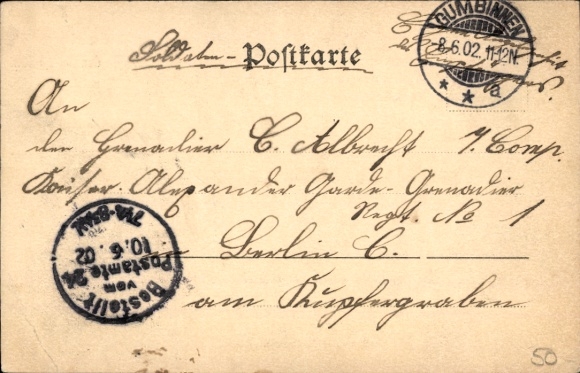 Soldaten - Postkarte
GUMBINNEN
8.6.02. 11-12N.
* * a
An
den Grenadier C. Albrecht 7. Comp.
Kaiser Alexander Garde-Grenadier
Regt. No 1
Berlin C.
am Kupfergraben
Bestellt
vom
Postamte 24
10.6.02
50